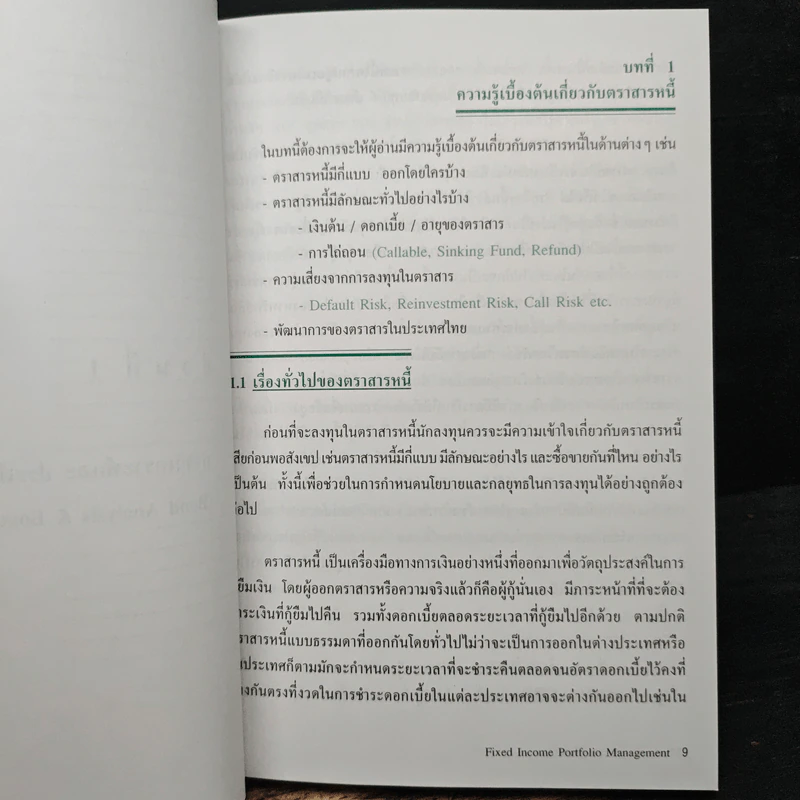 บทที่ 1
ความรู้เบื้องต้นเกี่ยวกับตราสารหนี้
ในบทนี้ต้องการจะให้ผู้อ่านมีความรู้เบื้องต้นเกี่ยวกับตราสารหนี้ในด้านต่างๆ เช่น
- ตราสารหนี้มีกี่แบบ ออกโดยใครบ้าง
- ตราสารหนี้มีลักษณะทั่วไปอย่างไรบ้าง
- เงินต้น / ดอกเบี้ย / อายุของตราสาร
- การไถ่ถอน (Callable, Sinking Fund, Refund)
- ความเสี่ยงจากการลงทุนในตราสาร
- Default Risk, Reinvestment Risk, Call Risk etc.
- พัฒนาการของตราสารในประเทศไทย
1.1 เรื่องทั่วไปของตราสารหนี้
ก่อนที่จะลงทุนในตราสารหนี้นักลงทุนควรจะมีความเข้าใจเกี่ยวกับตราสารหนี้
สียก่อนพอสังเขป เช่นตราสารหนี้มีกี่แบบ มีลักษณะอย่างไร และซื้อขายกันที่ไหน อย่างไร
ป็นต้น ทั้งนี้เพื่อช่วยในการกำหนดนโยบายและกลยุทธในการลงทุนได้อย่างถูกต้อง
่อไป
ตราสารหนี้ เป็นเครื่องมือทางการเงินอย่างหนึ่งที่ออกมาเพื่อวัตถุประสงค์ในการ
ยืมเงิน โดยผู้ออกตราสารหรือความจริงแล้วก็คือผู้กู้นั่นเอง มีภาระหน้าที่ที่จะต้อง
าระเงินที่กู้ยืมไปคืน รวมทั้งดอกเบี้ยตลอดระยะเวลาที่กู้ยืมไปอีกด้วย ตามปกติ
ราสารหนี้แบบธรรมดาที่ออกกันโดยทั่วไปไม่ว่าจะเป็นการออกในต่างประเทศหรือ
นประเทศก็ตามมักจะกำหนดระยะเวลาที่จะชำระคืนตลอดจนอัตราดอกเบี้ยไว้คงที่
างกันตรงที่งวดในการชำระดอกเบี้ยในแต่ละประเทศอาจจะต่างกันออกไปเช่นใน
Fixed Income Portfolio Management 9